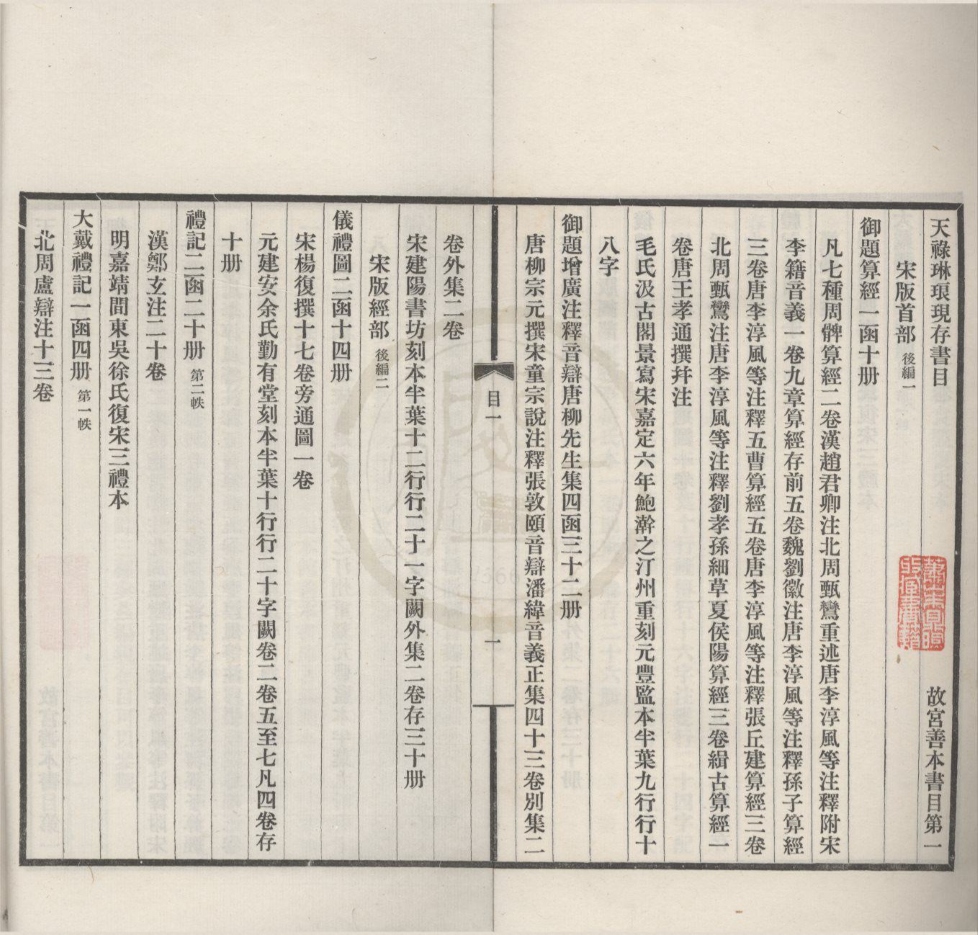 天祿琳琅現存書目　故宮善本書目第一
宋版首部 後編一
御題算經一函十册
凡七種周髀算經二卷漢趙君卿注北周甄鸞重述唐李淳風等注釋附宋
李籍音義一卷九章算經存前五卷魏劉徽注唐李淳風等注釋孫子算經
三卷唐李淳風等注釋五曹算經五卷唐李淳風等注釋張丘建算經三卷
北周甄鸞注唐李淳風等注釋劉孝孫細草夏侯陽算經三卷緝古算經一
卷唐王孝通撰幷注
毛氏汲古閣景寫宋嘉定六年鮑澣之汀州重刻元豐監本半葉九行行十
八字
御題增廣注釋音辯唐柳先生集四函三十二册
唐柳宗元撰宋童宗說注釋張敦頤音辯潘緯音義正集四十三卷別集二
目一
一
卷外集二卷
宋建陽書坊刻本半葉十二行行二十一字闕外集二卷存三十册
宋版經部 後編二
儀禮圖二函十四册
宋楊復撰十七卷旁通圖一卷
元建安余氏勤有堂刻本半葉十行行二十字闕卷二卷五至七凡四卷存
十册
禮記二函二十册 第二帙
漢鄭玄注二十卷
明嘉靖間東吳徐氏復宋三禮本
大戴禮記一函四册 第一帙
北周盧辯注十三卷